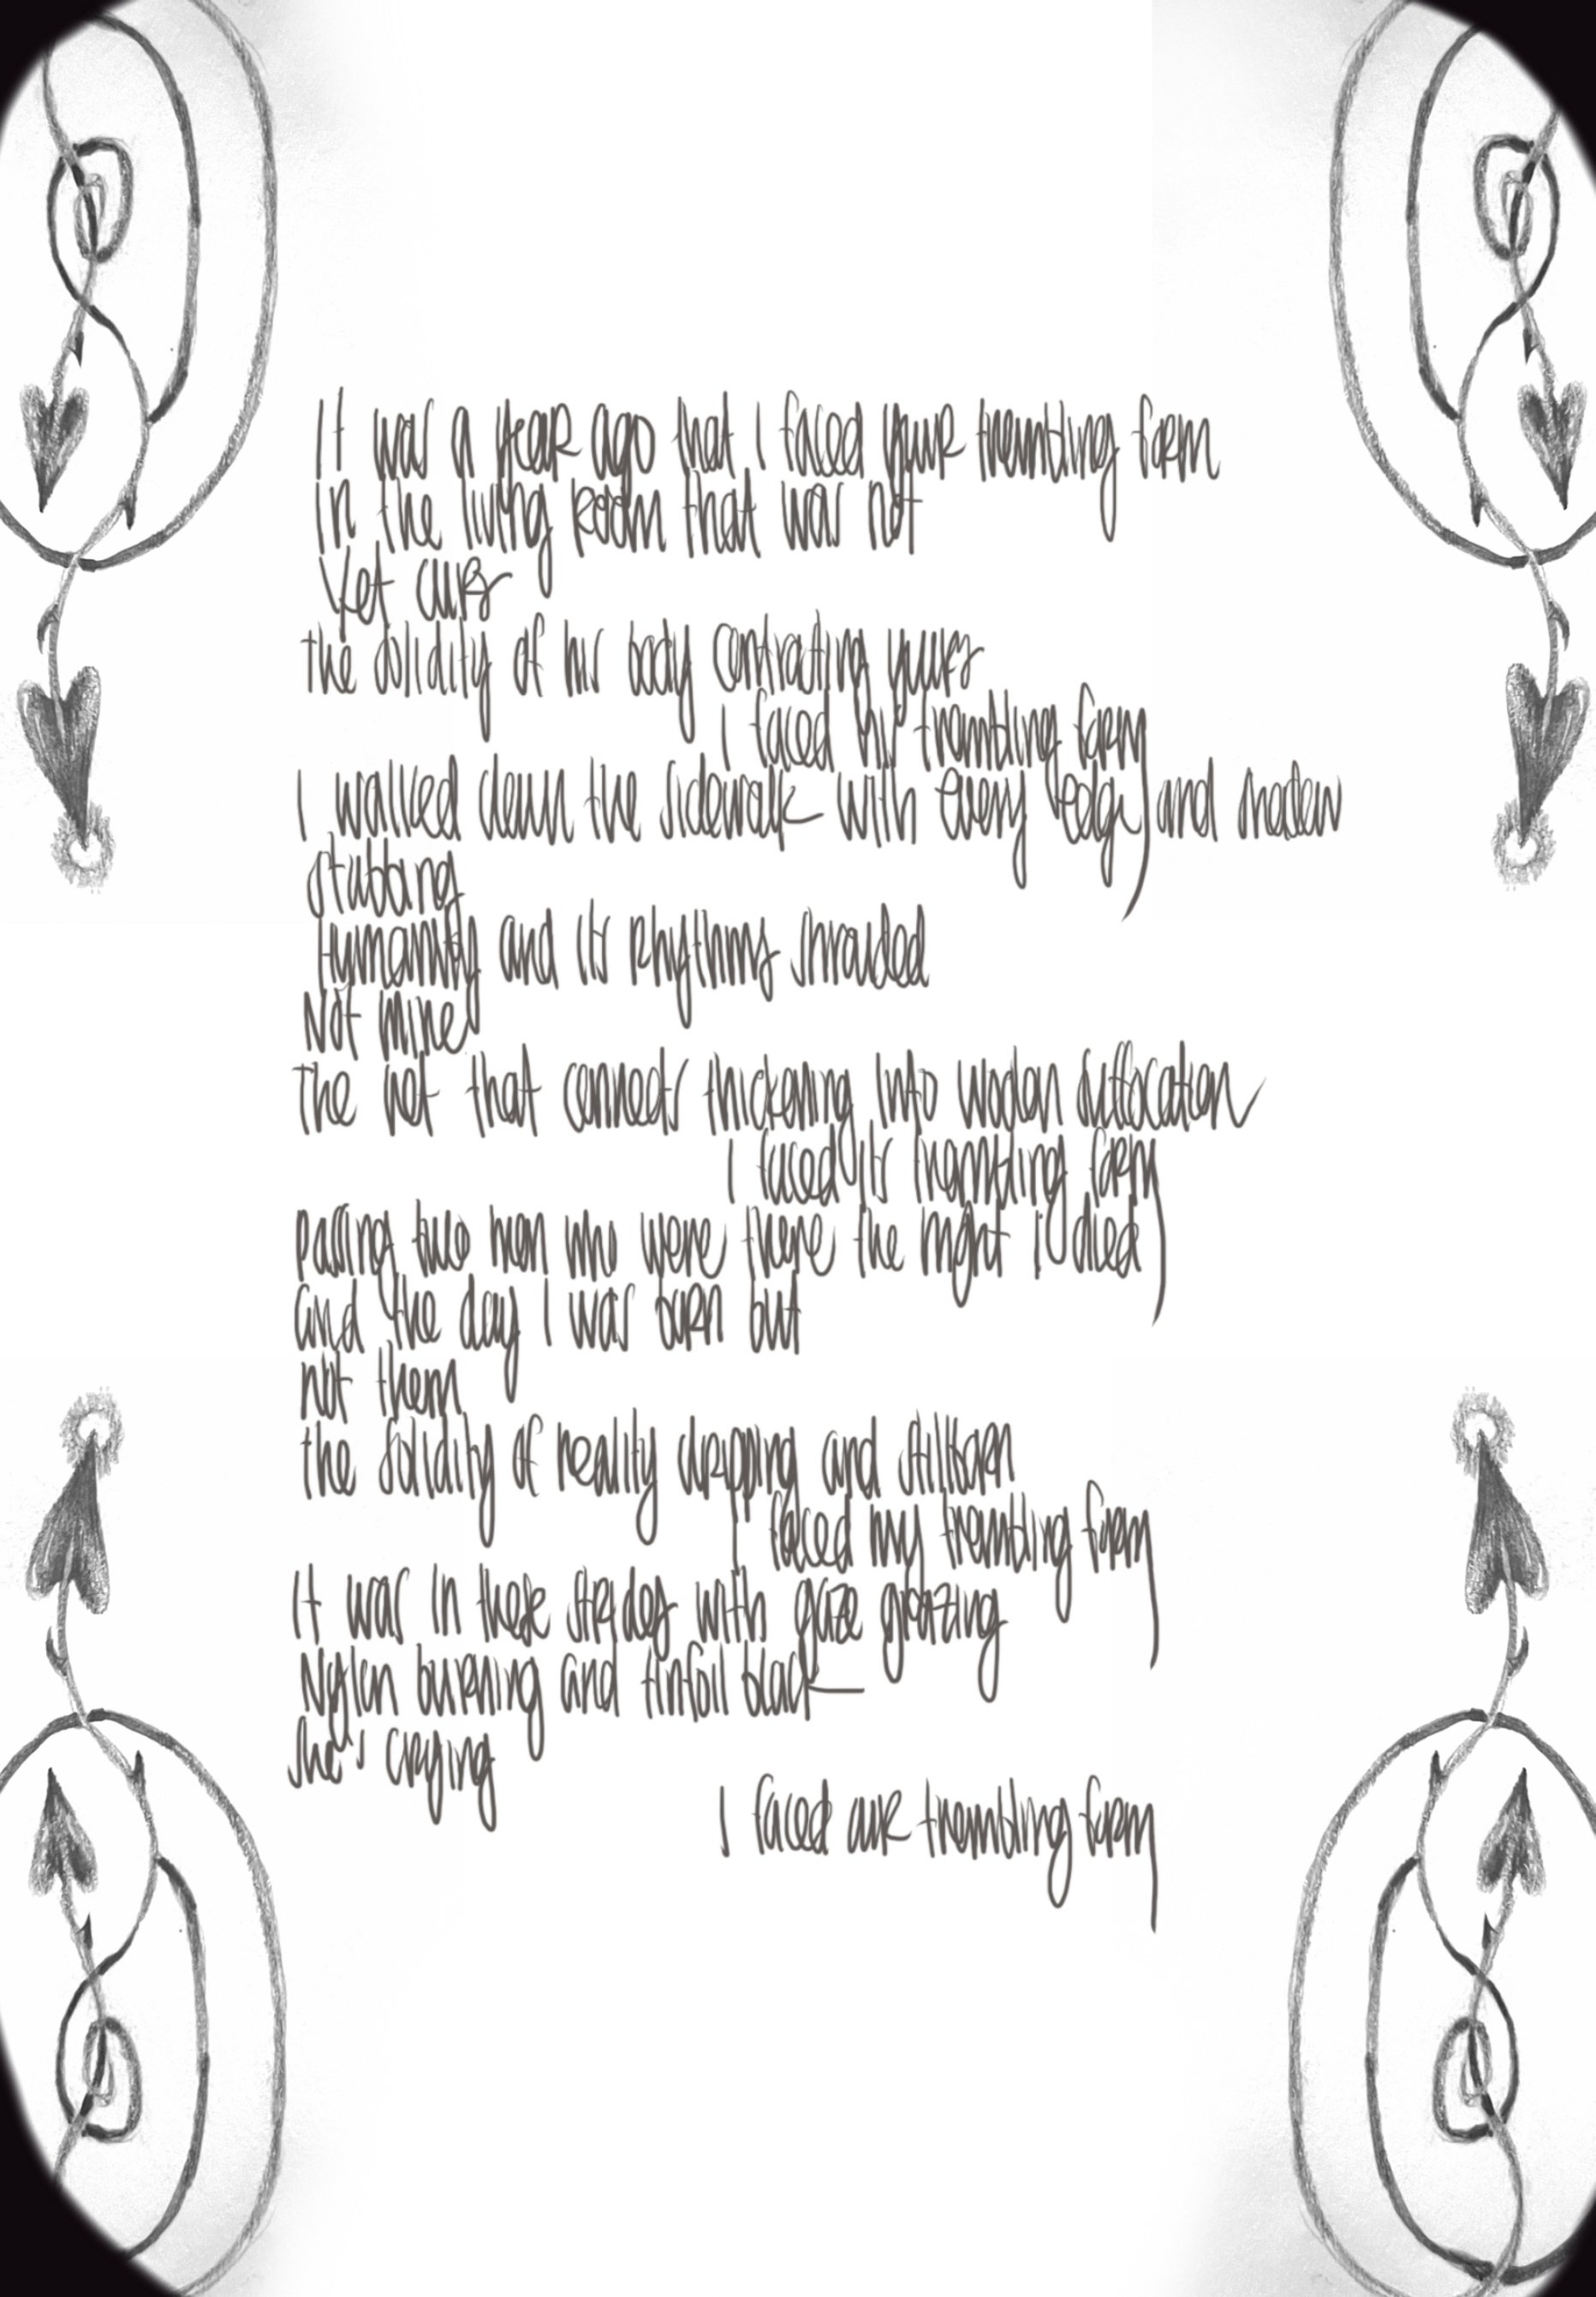 It was a year ago that I faced your trembling form
in the living room that was not
Yet ours
the solidity of his body contrasting yours
I faced his trembling form
I walked down the sidewalk with every edge and shadow
stabbing
Humanity and its rhythms shrouded
Not mine
The net that connects thickening into woolen suffocation
I faced its trembling form
passing two men who were there the night I died
and the day I was born but
not them
the solidity of reality dripping and stillborn
I faced my trembling form
It was in these strides with gaze grazing
Nylon burning and tinfoil black
she's crying
I faced our trembling form